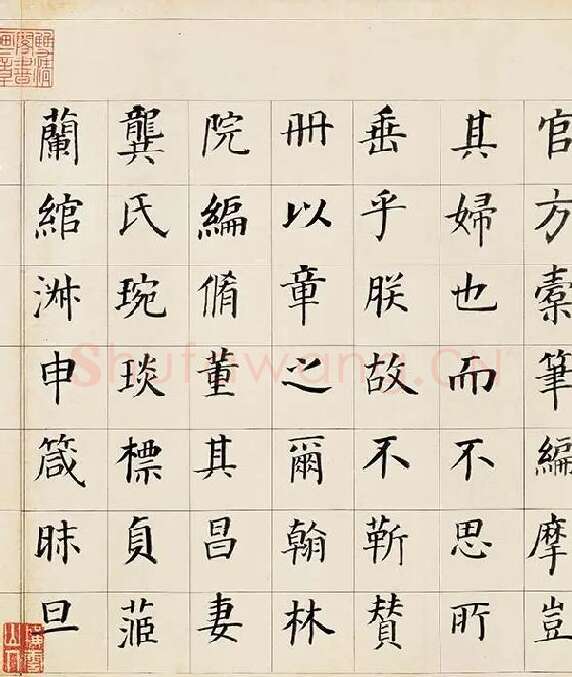 官方橐筆編摩豈
其婦也而不思所
垂乎朕故不靳贊
冊以章之爾翰林
院編脩董其昌妻
龔氏琬琰標貞茝
蘭綰淑申箴昧旦
Shufawang.CN